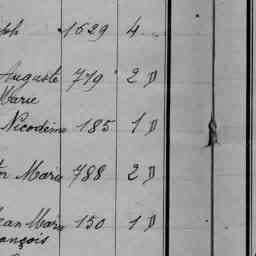 ph 1629 4
Auguste 779 2 D
Marie
Nicodème 185 1 D
Marie 788 2 D
Jean Marie 150 1 D
ançois